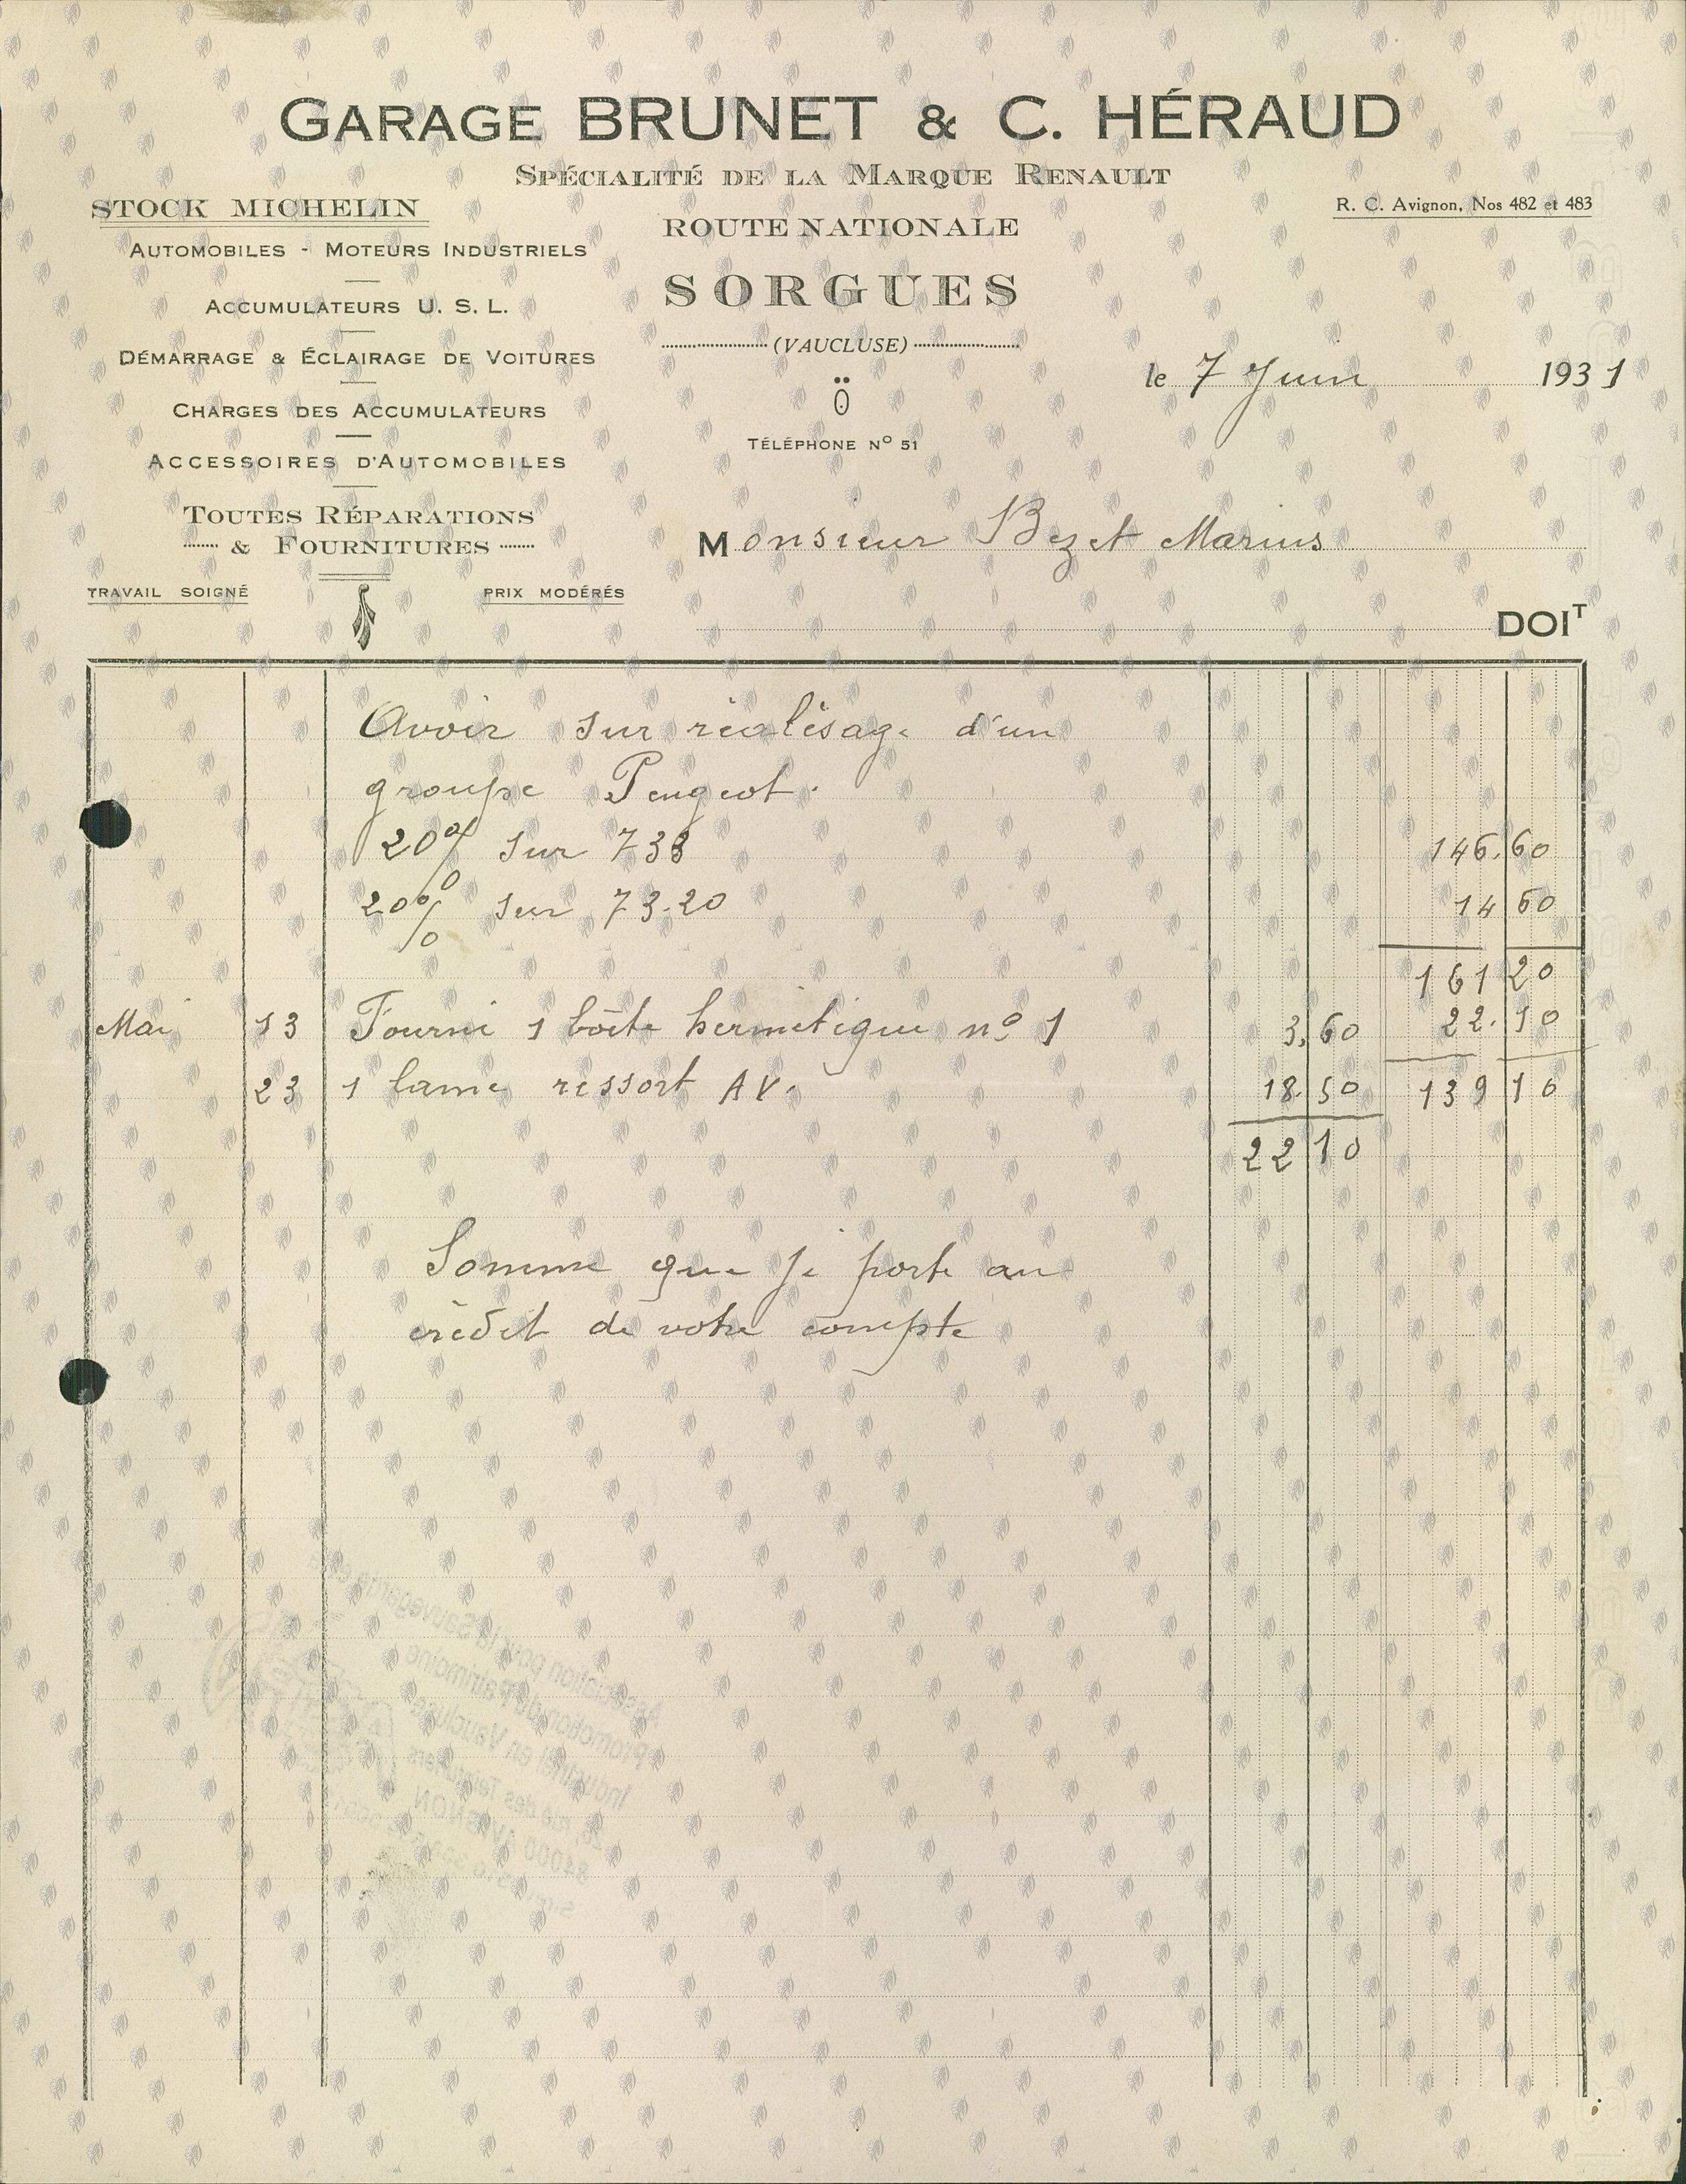 GARAGE BRUNET & C. HÉRAUD
SPÉCIALITÉ DE LA MARQUE RENAULT
STOCK MICHELIN
R. C. Avignon, Nos 482 et 483
ROUTE NATIONALE
AUTOMOBILES - MOTEURS INDUSTRIELS
SORGUES
ACCUMULATEURS U. S. L.
(VAUCLUSE)
DÉMARRAGE & ÉCLAIRAGE DE VOITURES
le 7 Juin 1931
CHARGES DES ACCUMULATEURS
TÉLÉPHONE Nº 51
ACCESSOIRES D'AUTOMOBILES
TOUTES RÉPARATIONS
& FOURNITURES
Monsieur Bezet Marius
TRAVAIL SOIGNÉ PRIX MODÉRÉS
DOIT
Avoir sur réalésage d'un
groupe Peugeot.
20% sur 733 146.60
20% sur 73.20 14 60
161 20
Mai 13 Fourni 1 boîte hermétique nº 1 3,60 22.10
23 1 lame ressort AV. 18.50 139 10
22 10
Somme que je porte au
crédit de votre compte
Association pour la Sauvegarde et la
promotion du Patrimoine
Industriel en Vaucluse
rue des Teinturiers
84000 AVIGNON